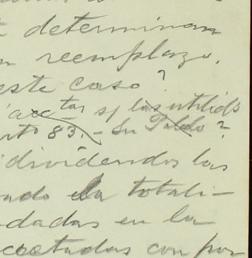 determinan
n reemplazo.
este caso?
tar s/ las utilid
rto 83. - Su Toldo?
dividendos las
ado la totali-
dadas en la
ectadas con por